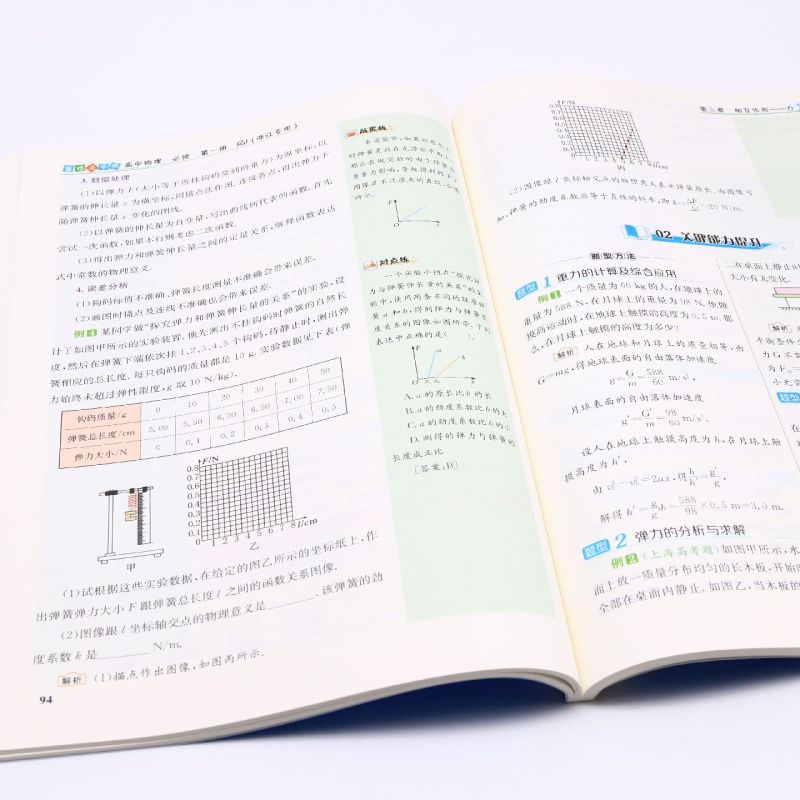 高中物理 必修 第一册 RJ(浙江专用)
3. 数据处理
(1)以弹力F(大小等于所挂钩码受到的重力)为纵坐标,以
弹簧的伸长量x为横坐标,用描点法作图,连接各点,得出弹力F
随弹簧伸长量x变化的图线.
(2)以弹簧的伸长量为自变量,写出曲线所代表的函数.首先
尝试一次函数,如果不行则考虑二次函数.
(3)得出弹力和弹簧伸长量之间的定量关系,解释函数表达
式中常数的物理意义.
4. 误差分析
(1)钩码标值不准确、弹簧长度测量不准确会带来误差.
(2)画图时描点及连线不准确也会带来误差.
例4 某同学做“探究弹力和弹簧伸长量的关系”的实验,设
计了如图甲所示的实验装置.他先测出不挂钩码时弹簧的自然长
度,然后在弹簧下端依次挂1,2,3,4,5个钩码,待静止时,测出弹
簧相应的总长度.每只钩码的质量都是10 g.实验数据见下表(弹
力始终未超过弹性限度,g取10 N/kg).
钩码质量/g 0 10 20 30 40 50
弹簧总长度/cm 5.00 5.50 6.00 6.50 7.00 7.50
弹力大小/N 0 0.1 0.2 0.3 0.4 0.5
F/N
0.8
0.7
0.6
0.5
0.4
0.3
0.2
0.1
0 1 2 3 4 5 6 7 8 l/cm
甲
乙
(1)试根据这些实验数据,在给定的图乙所示的坐标纸上,作
出弹簧弹力大小F跟弹簧总长度l之间的函数关系图像.
(2)图像跟l坐标轴交点的物理意义是______.该弹簧的劲
度系数k是______ N/m.
解析 (1)描点作出图像,如图丙所示.
94
敲黑板
所示.
F
O
x
对点练
一个实验小组在“探究弹
力与弹簧伸长量的关系”的实
验中,使用两条不同的轻质弹
簧a和b,得到弹力与弹簧长
度关系的图像如图所示.下列
表述中正确的是( ).
F
a
b
O
x
A. a的原长比b的长
B. a的劲度系数比b的大
C. a的劲度系数比b的小
D. 测得的弹力与弹簧的
长度成正比
[答案:B]
第三章 相互作用——力
F/N
丙
(2)图像跟l坐标轴交点的物理意义表示弹簧原长.由图像可
知,弹簧的劲度系数应等于直线的斜率,即k=ΔF/Δx=20 N/m.
02 关键能力提升
题型方法
题型 1 重力的计算及综合应用
例1 一个质量为60 kg的人,在地球上的
重量为588 N,在月球上的重量为98 N.他做
摸高运动时,在地球上触摸的高度为0.5 m.那
么,在月球上触摸的高度为多少?
解析 人在地球和月球上的质量相等,由
G=mg,得地球表面的自由落体加速度
g=G/m=588/60 m/s²,
月球表面的自由落体加速度
g′=G′/m=98/60 m/s².
设人在地球上触摸高度为h,在月球上触
摸高度为h′,
由v²−v₀²=2ax,得h/h′=g′/g.
解得h′=g/g′h=588/98×0.5 m=3.0 m.
题型 2 弹力的分析与求解
例2 (上海高考题)如图甲所示,水
面上放一质量分布均匀的长木板,开始时
全部在桌面内静止.如图乙,当木板的
二在桌面上静止时
大小有无变化.
解析
力G